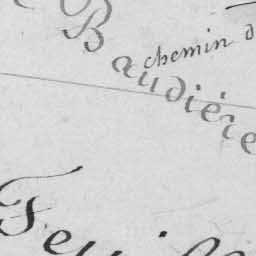 chemin d
Baudière
Feuill